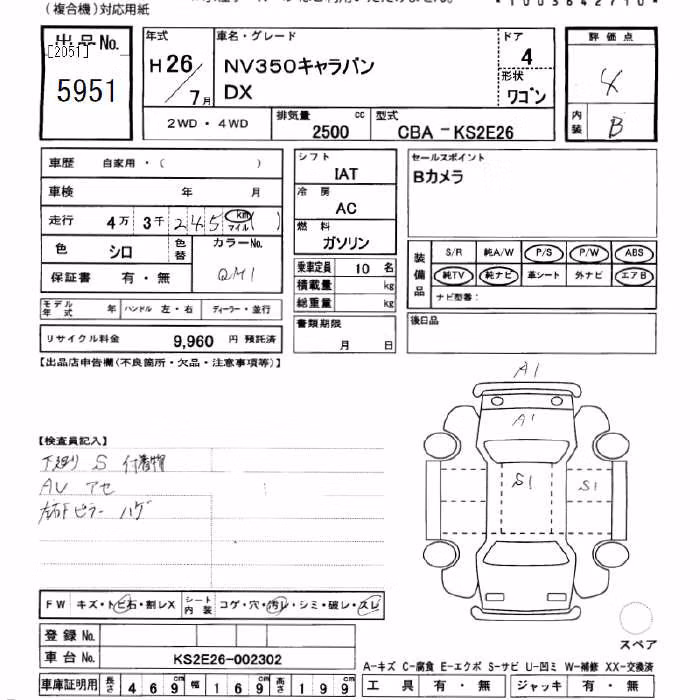 (複合機)対応用紙
*1003642710*
出品No.
[2051]
5951
年式
H26/7月
車名・グレード
NV350キャラバン
DX
ドア
4
形状
ワゴン
評価点
4
内装
B
2WD・4WD
排気量
2500cc
型式
CBA-KS2E26
車歴 自家用・( )
車検 年 月
走行 4万3千245km マイル( )
色 シロ 色替 カラーNo. QM1
保証書 有・無
モデル年式 年 ハンドル 左・右 ディーラー・並行
リサイクル料金 9,960 円 預託済
シフト
IAT
冷房
AC
燃料
ガソリン
乗車定員 10 名
積載量 kg
総重量 kg
書類期限
月 日
セールスポイント
Bカメラ
装備品
S/R 純A/W P/S P/W ABS
純TV 純ナビ 革シート 外ナビ エアB
ナビ型番:
後日品
【出品店申告欄(不良箇所・欠品・注意事項等)】
A1
A1
S1
S1
【検査員記入】
下廻り S 付着物
AW アセ
左右Fピラー ハゲ
FW キズ・トビ石・割レX シート内装 コゲ・穴・汚レ・シミ・破レ・スレ
登録No.
車台No. KS2E26-002302
車庫証明用 長さ 469cm 幅 169cm 高さ 199cm
スペア
A-キズ C-腐食 E-エクボ S-サビ U-凹ミ W-補修 XX-交換済
工具 有・無 ジャッキ 有・無